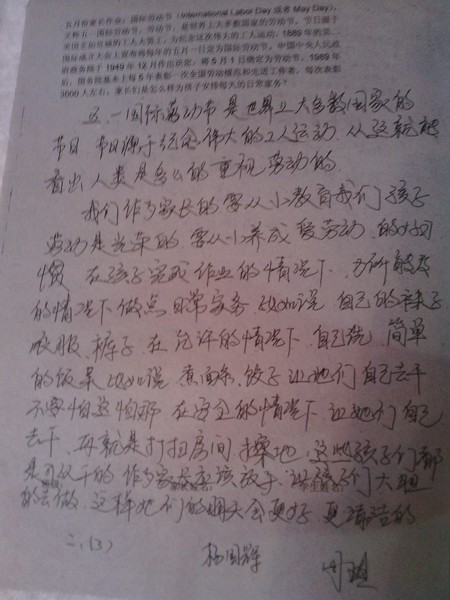 五月份家长作业：国际劳动节（International Labor Day 或者 May Day），
又称五一国际劳动节、劳动节，是世界上大多数国家的劳动节。节日源于
美国芝加哥城的工人大罢工，为纪念这次伟大的工人运动，1889年的第二
国际成立大会上宣布将每年的五月一日定为国际劳动节。中国中央人民政
府政务院于1949年12月作出决定，将5月1日确定为劳动节。1989年
后，国务院基本上每5年表彰一次全国劳动模范和先进工作者，每次表彰
3000人左右。家长们是怎么样为孩子安排每天的日常家务？
五·一国际劳动节是世界上大多数国家的
节日 节日源于纪念伟大的工人运动，从这就能
看出人类是多么的重视劳动的
我们作为家长的要从小教育我们孩子
劳动是光荣的 要从小养成爱劳动的好习
惯 在孩子完成作业的情况下，力所能及
的情况下做点日常家务 比如说 自己的袜子
衣服 裤子 在允许的情况下 自己洗 简单
的饭菜 比如说 煮面条 饺子 让他们自己去干
不要怕这怕那 在安全的情况下 让她们自己
去干 再就是打扫房间 擦地 这些孩子们都
是可以干的 作为家长应该放手 让孩子们大胆
的去做 这样她们的明天会更好 更辉煌的
二·(3) 杨国辉